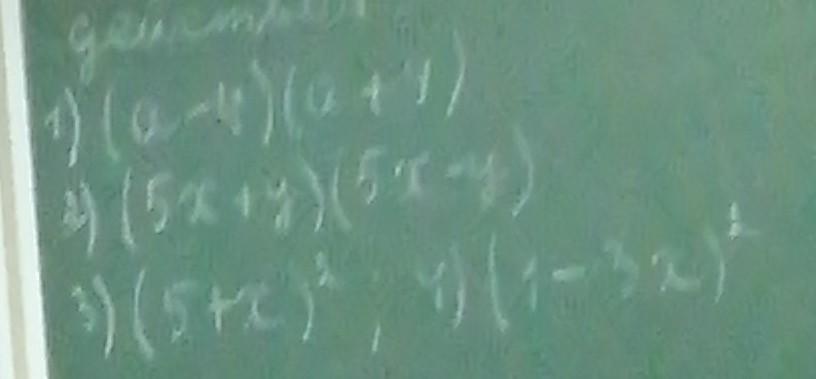 действия
1) (a-4)(a+4)
2) (5x+y)(5x-y)
3) (5+x)²; 4) (1-3x)²